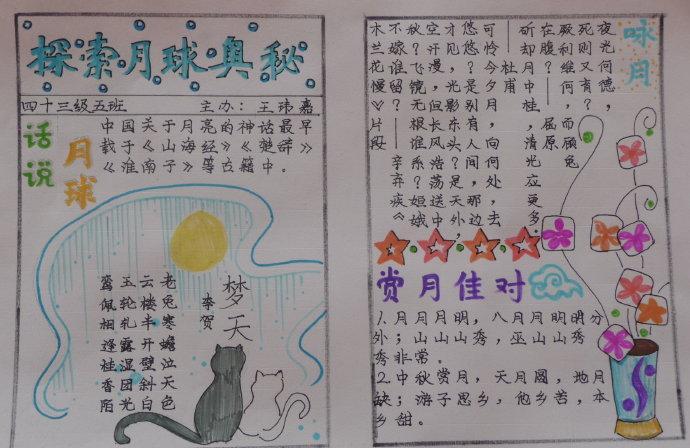 探索月球奥秘
四十三级五班 主办：王玮嘉
话说
月球
中国关于月亮的神话最早
载于《山海经》《楚辞》
《淮南子》等古籍中。
梦天
李贺
老兔寒蟾泣天色
云楼半开壁斜白
玉轮轧露湿团光
鸾佩相逢桂香陌
咏月
夜光何德，
死则又育？
厥利维何，而顾菟
在腹？——屈原
斫却月中桂，清光应更多。
——杜甫
可怜今夕月，向何处，去
悠悠？是别有人间，那边
才见，光影东头？是天外
空汗漫，
间长风浩荡送中
秋？飞镜无根谁系？姮娥
不嫁谁留？——辛弃疾《
木兰花慢
片段
赏月佳对
1.月月月明，八月月明明分
外；山山山秀，巫山山秀
秀非常。
2.中秋赏月，天月圆，地月
缺；游子思乡，他乡苦，本
乡甜。